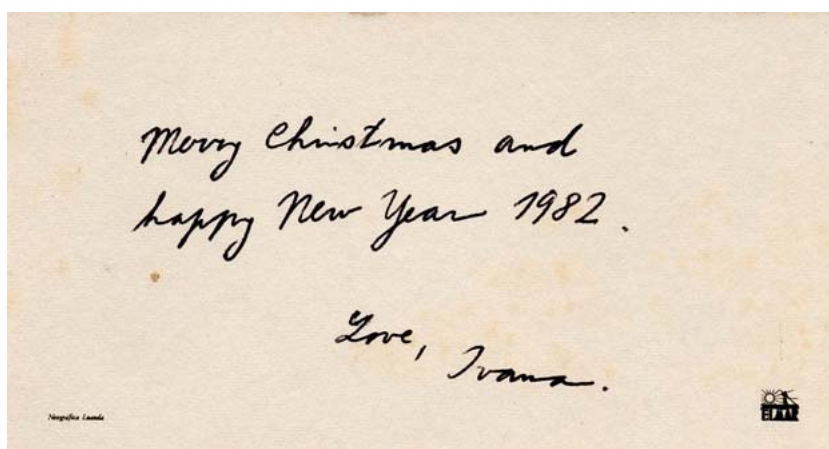 Merry Christmas and
happy New Year 1982.
Love,
Ivana.
Neográfica Luanda